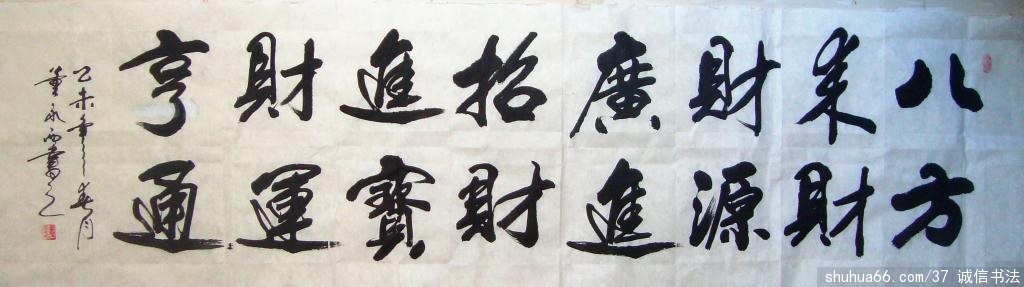 八方
来財
財源
廣進
招財
進寶
財運
亨通
乙未年之春月
董永書之
shuhua66.com/37 诚信书法